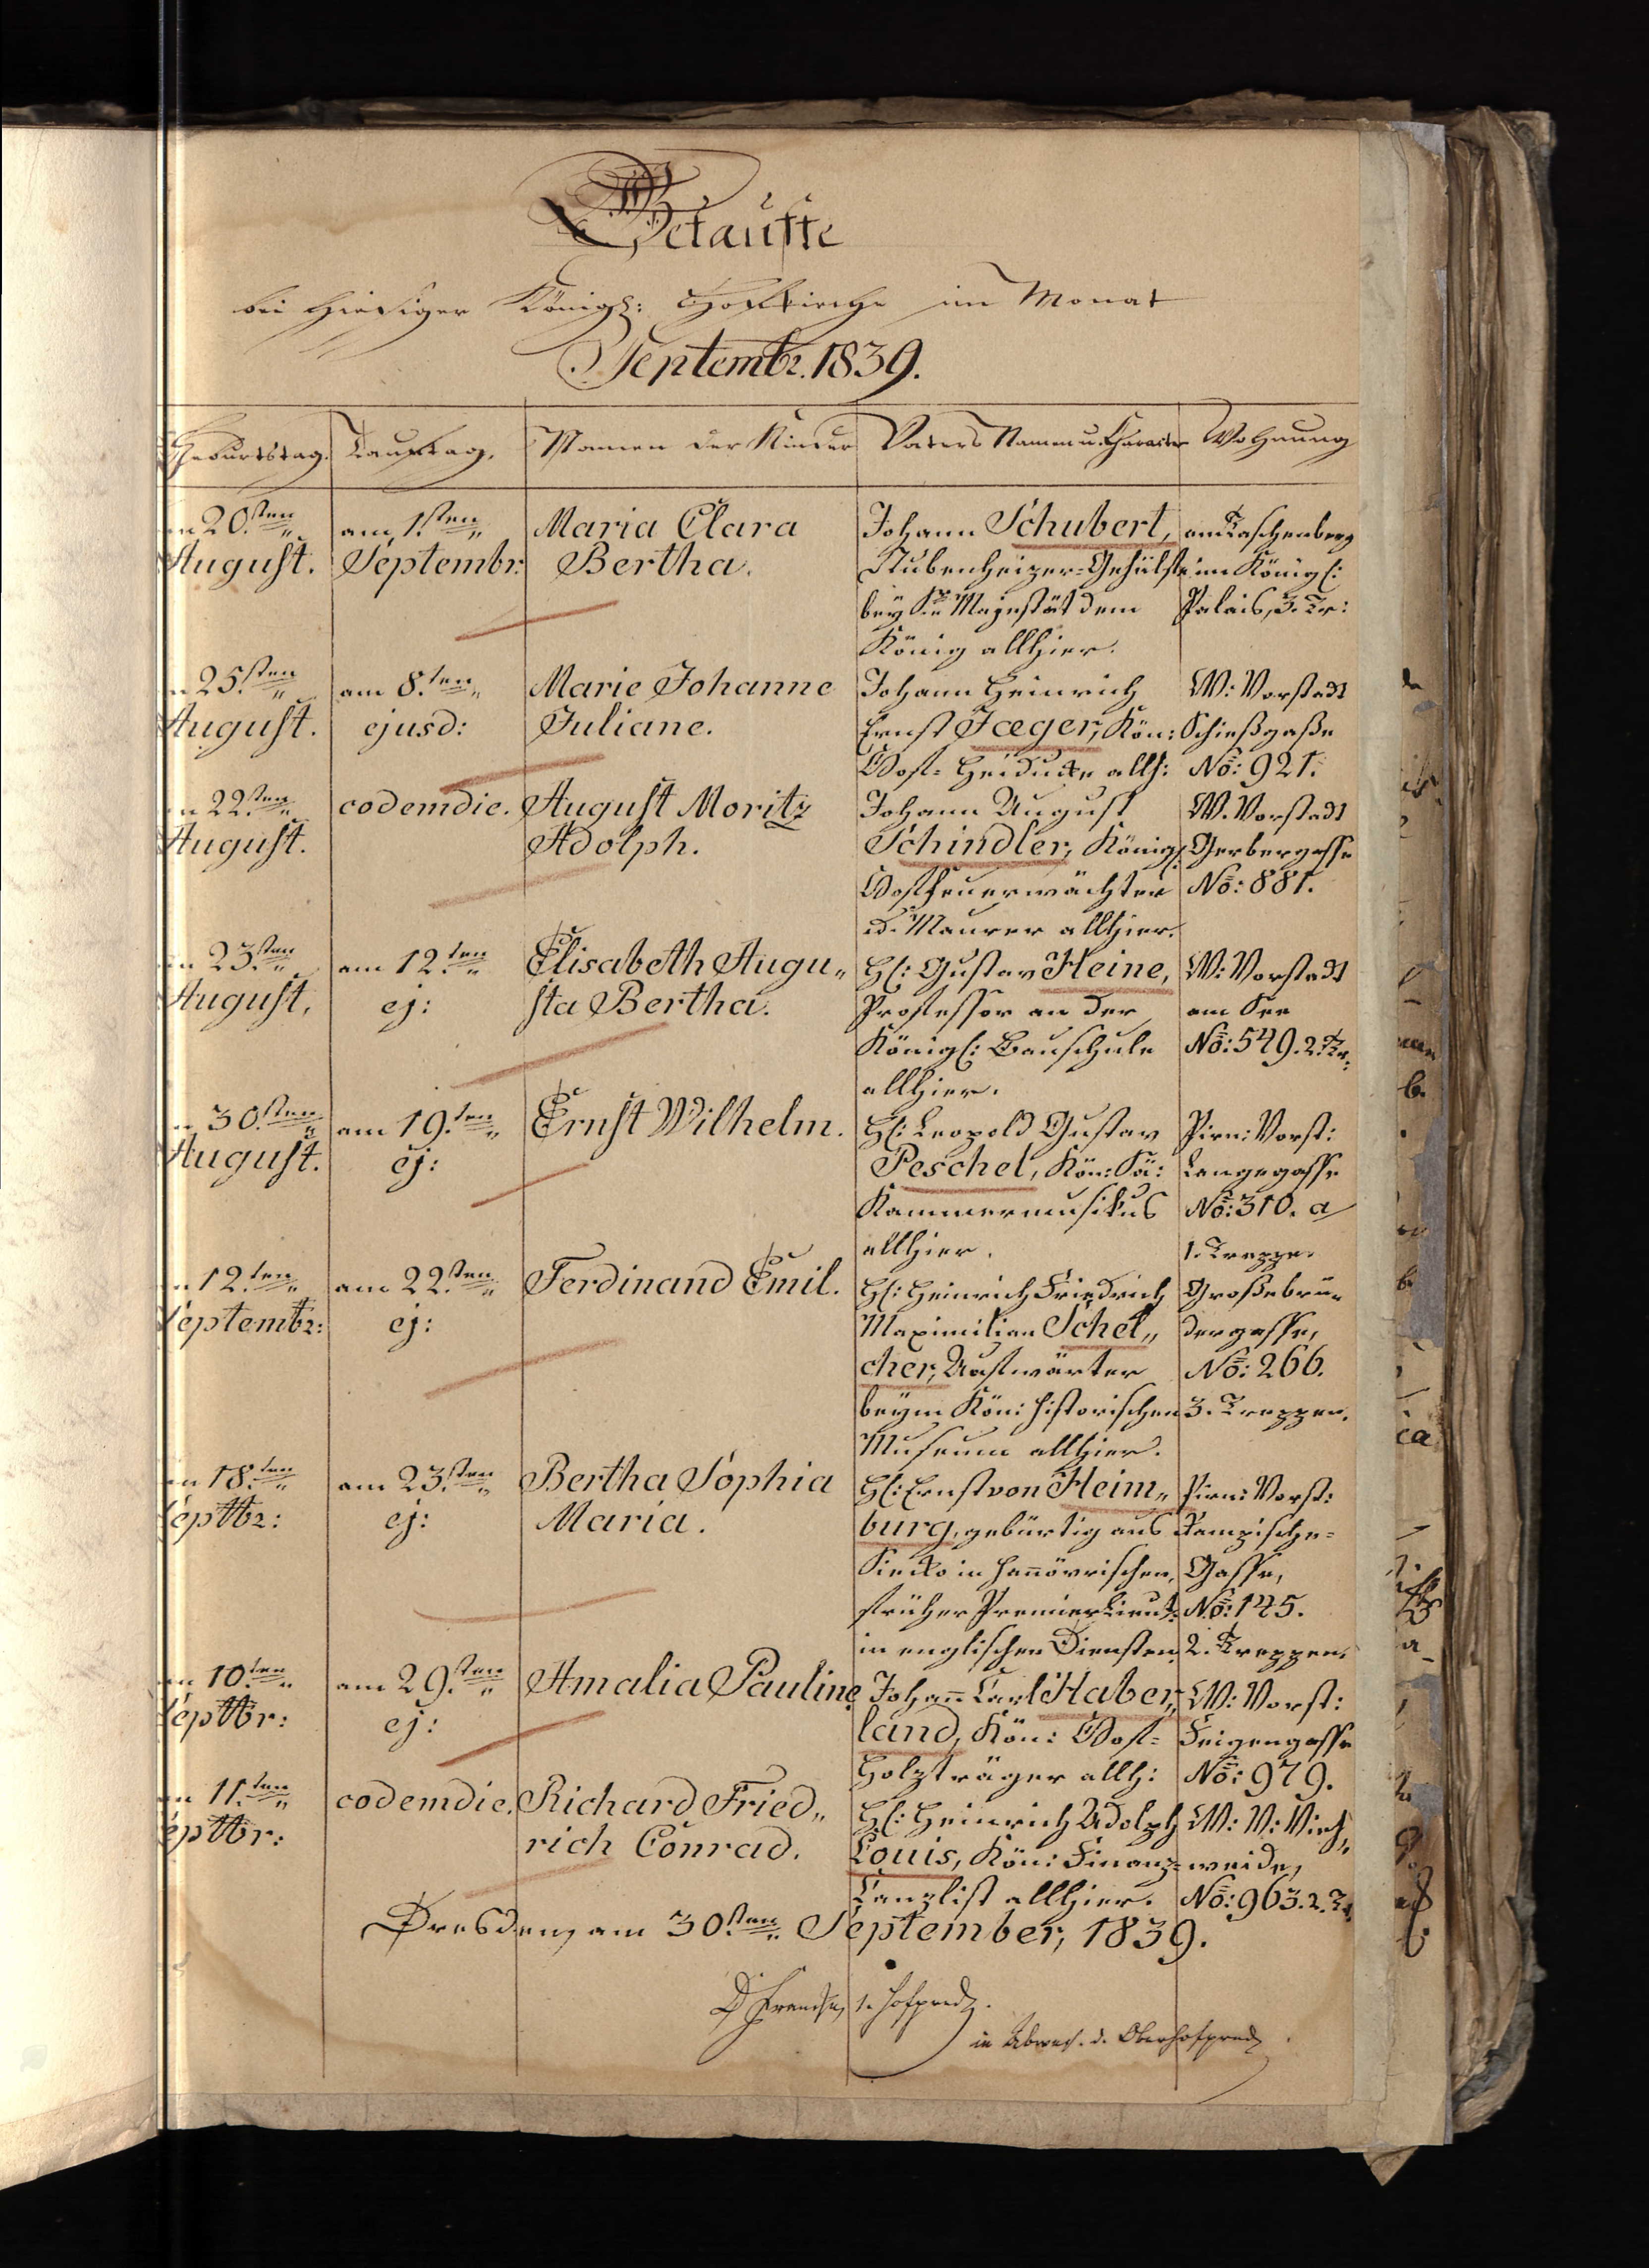 Getaufte
bei hiesiger Königl: Hofkirche im Monat
Septembr. 1839.
Geburtstag. Tauftag. Namen der Kinder Vaters Namen u. Charakter Wohnung
20.sten am 1.sten Maria Clara Johann Schubert, am Taschenberg
August. Septembr: Bertha. Stubenheizer-Gehülfe im Königl:
bey Sr. Majestät dem Palais, 3. Tr:
König allhier.
25.sten am 8.ten Marie Johanne Johann Heinrich W: Vorstadt
August. ejusd: Juliane. Ernst Jæger, Kön: Schießgaße
Hof-Heiducke allh: No: 921.
22.sten eodem die. August Moritz Johann August W. Vorstadt
August. Adolph. Schindler, Königl: Gerbergasse
Hoffeuerwächter No: 881.
u. Maurer allhier.
23.sten am 12.ten Elisabeth Augu„ H: Gustav Heine, W: Vorstadt
August, ej: sta Bertha. Professor an der am See
Königl: Bauschule No: 549. 2. Tr.
allhier.
30.sten am 19.ten Ernst Wilhelm. H: Leopold Gustav Pirn: Vorst:
August. ej: Peschel, Kön: Sä: Langegasse
Kammermusikus No: 310. a
allhier. 1. Treppe.
12.ten am 22.sten Ferdinand Emil. H: Heinrich Friedrich Großebrü-
Septembr: ej: Maximilian Schel„ dergasse,
cher, Aufwärter No: 266.
beym Kön: historischen 3. Treppen.
Museum allhier.
18.ten am 23.sten Bertha Sophia H: Ernst von Heim„ Pirn: Vorst:
Septbr: ej: Maria. burg, gebürtig aus Rampische-
in Hannövrischen, Gasse,
früher Premierlieut: No: 145.
in englischen Diensten. 2. Treppen.
10.ten am 29.sten Amalia Pauline Johann Carl Haber„ W: Vorst:
Septbr: ej: land, Kön: Hof- Feigengasse
Holzträger allh: No: 979.
11.ten eodem die. Richard Fried„ H: Heinrich Adolph W: V: Vieh„
Septbr: rich Conrad. Louis, Kön: Finanz- weide,
Canzlist allhier. No: 963. 2. Tr.
Dresden, am 30.sten September, 1839.
D. Francke, 1. Hofpred.
in Abwes. d. Oberhofpred.